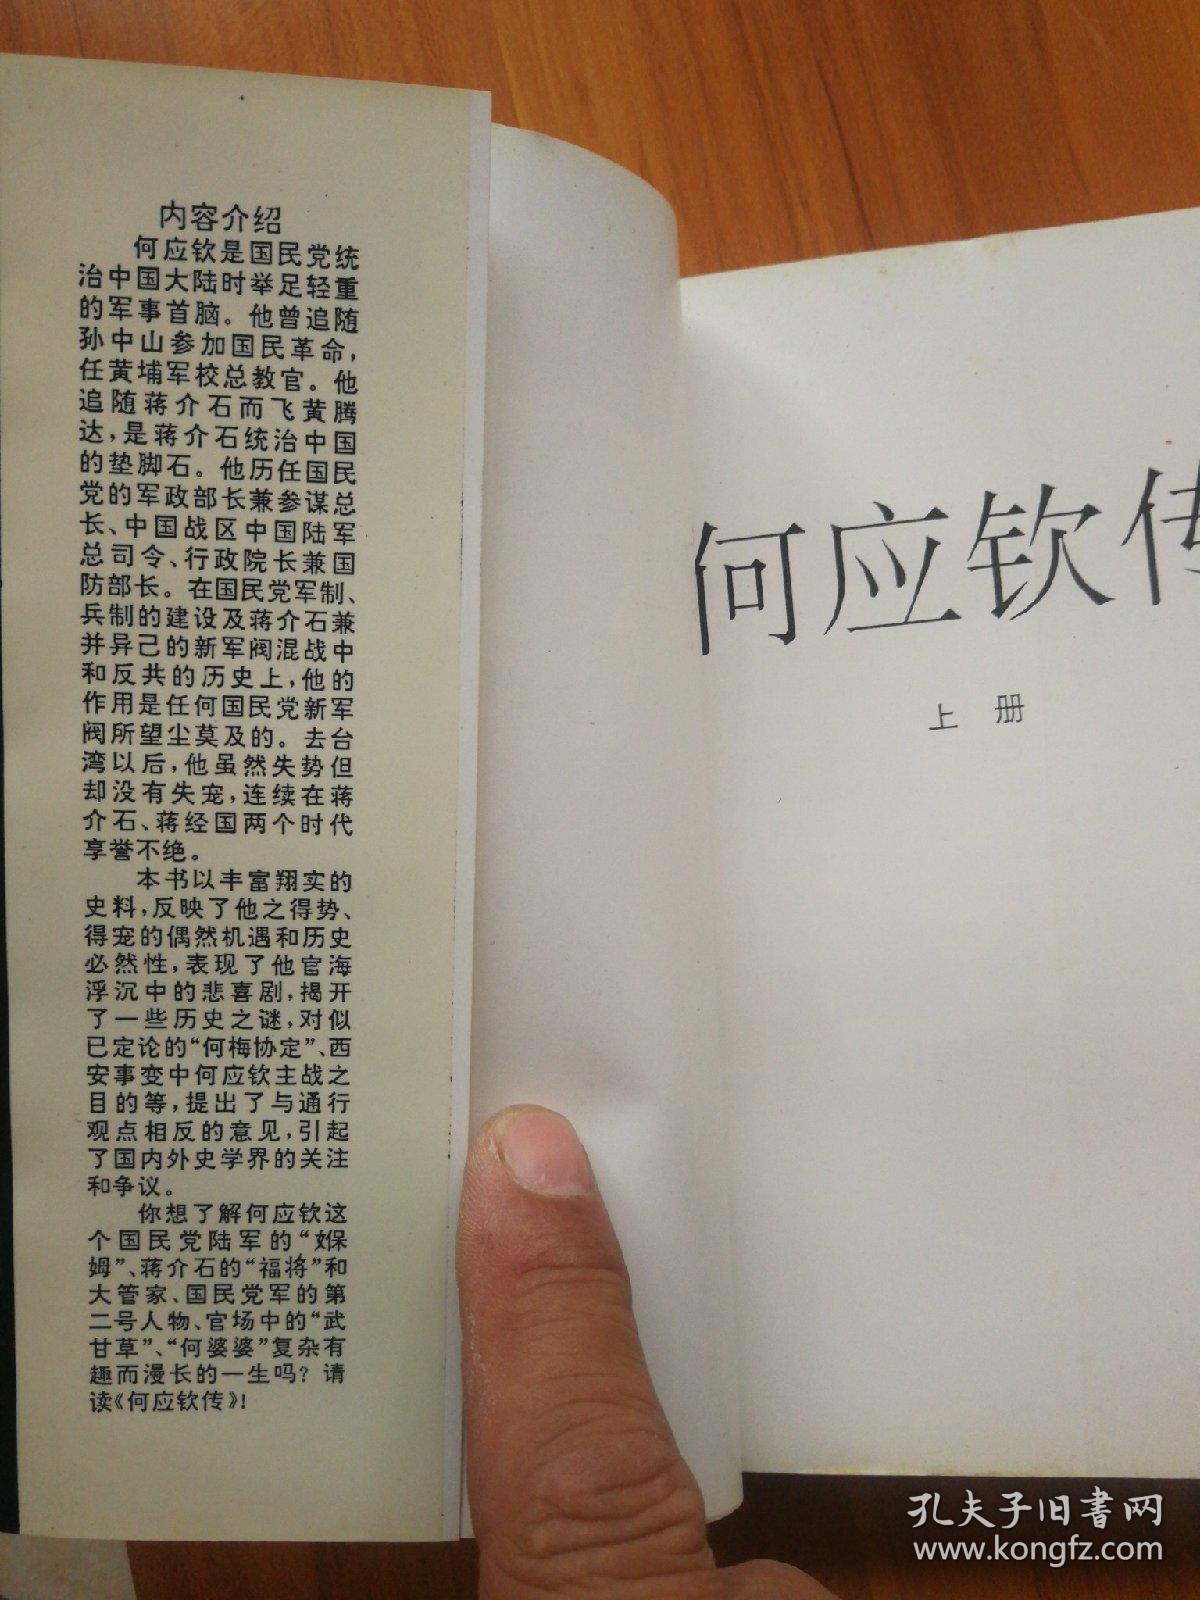 内容介绍
何应钦是国民党统
治中国大陆时举足轻重
的军事首脑。他曾追随
孙中山参加国民革命，
任黄埔军校总教官。他
追随蒋介石而飞黄腾
达，是蒋介石统治中国
的垫脚石。他历任国民
党的军政部长兼参谋总
长、中国战区中国陆军
总司令、行政院长兼国
防部长。在国民党军制、
兵制的建设及蒋介石兼
并异己的新军阀混战中
和反共的历史上，他的
作用是任何国民党新军
阀所望尘莫及的。去台
湾以后，他虽然失势但
却没有失宠，连续在蒋
介石、蒋经国两个时代
享誉不绝。
本书以丰富翔实的
史料，反映了他之得势、
得宠的偶然机遇和历史
必然性，表现了他官海
浮沉中的悲喜剧，揭开
了一些历史之谜，对似
已定论的“何梅协定”、西
安事变中何应钦主战之
目的等，提出了与通行
观点相反的意见，引起
了国内外史学界的关注
和争议。
你想了解何应钦这
个国民党陆军的“保
姆”、蒋介石的“福将”和
大管家、国民党军的第
二号人物、官场中的“武
甘草”、“何婆婆”复杂有
趣而漫长的一生吗？请
读《何应钦传》！
何应钦传
上册
孔夫子旧书网
www.kongfz.com